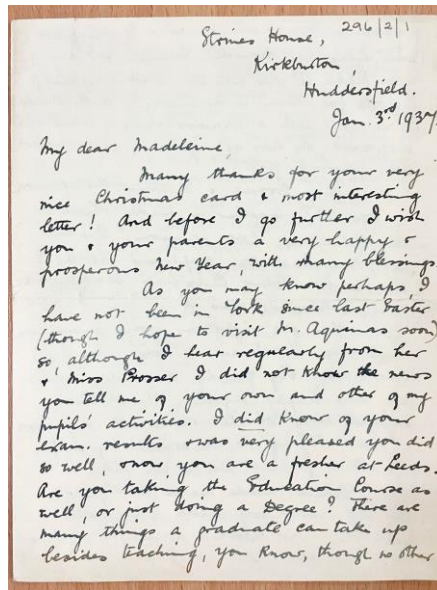 296/2/1
Strines House,
Kirkburton,
Huddersfield.
Jan. 3rd 1937.
My dear Madeleine,
Many thanks for your very
nice Christmas card & most interesting
letter! And before I go further I wish
you & your parents a very happy &
prosperous New Year, with many blessings.
As you may know perhaps, I
have not been in York since last Easter
(though I hope to visit M. Aquinas soon)
so, although I hear regularly from her
& Miss Prosser I did not know the news
you tell me of your own and other of my
pupils' activities. I did know of your
exam. results & was very pleased you did
so well, & now you are a fresher at Leeds.
Are you taking the Education Course as
well, or just doing a Degree? There are
many things a graduate can take up
besides teaching, you know, though no other